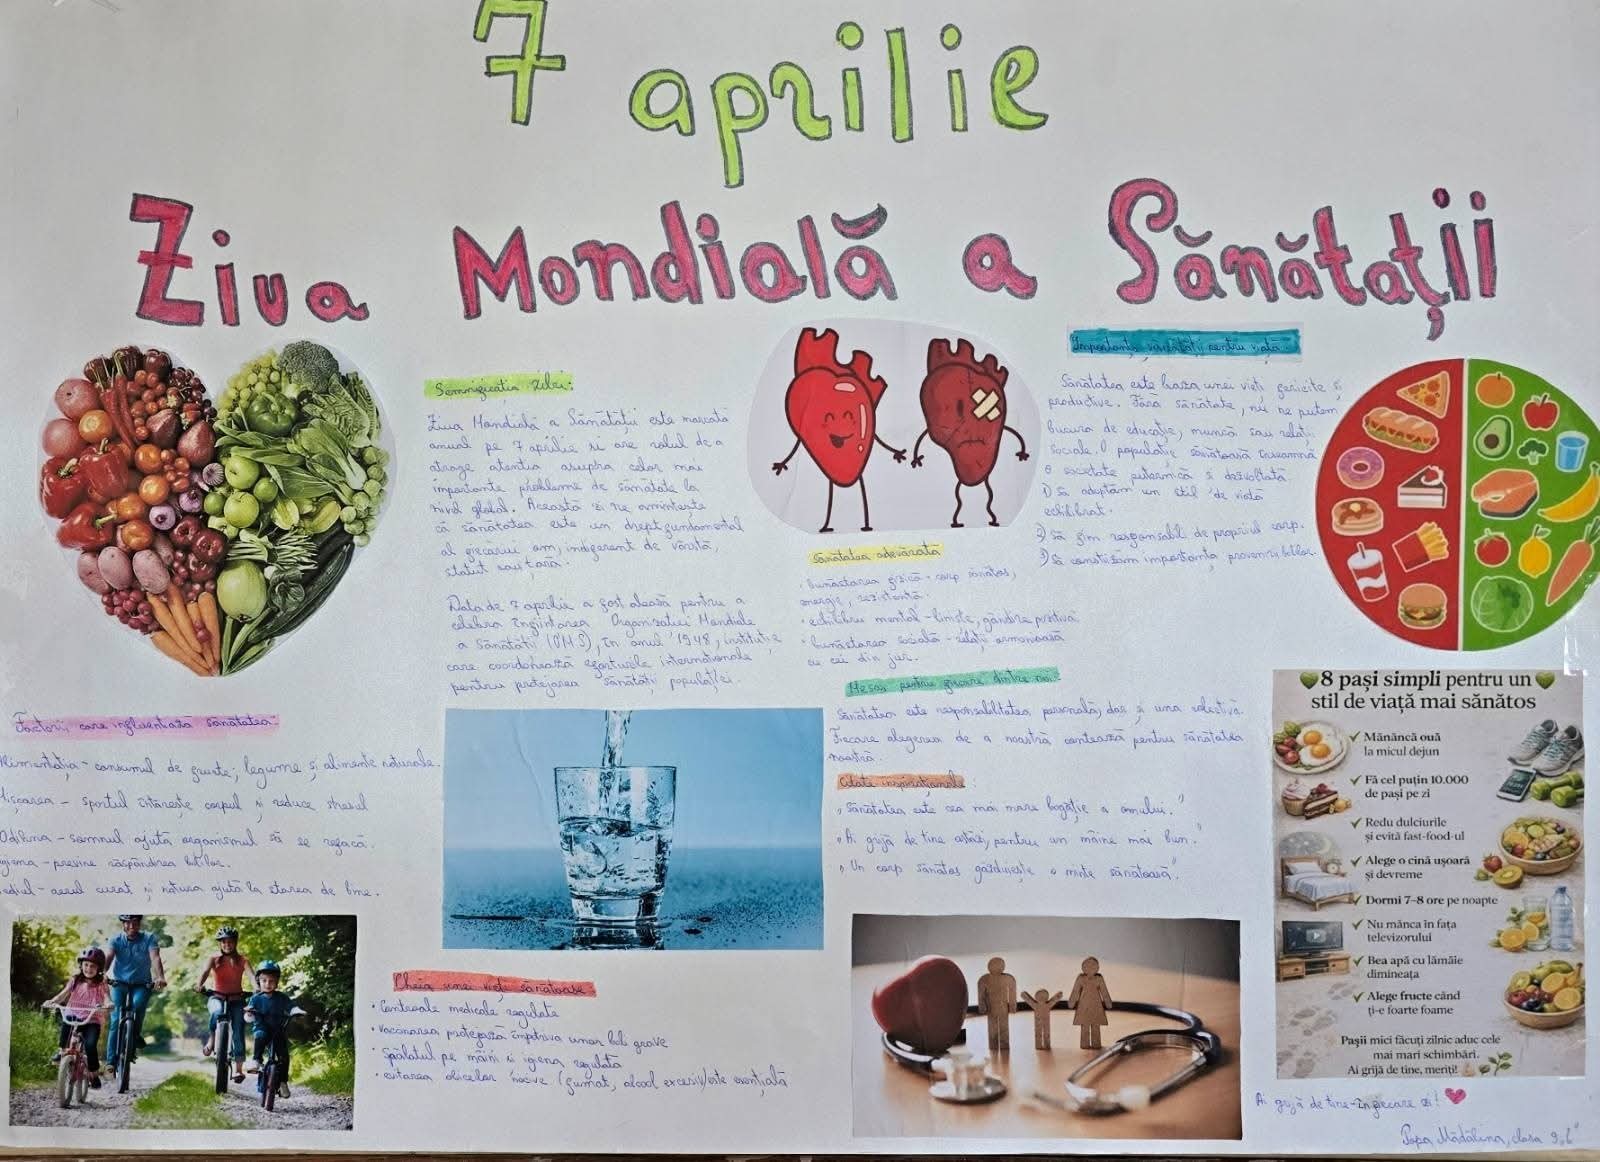 7 aprilie
Ziua Mondială a Sănătății
Semnificația zilei:
Ziua Mondială a Sănătății este marcată
anual pe 7 aprilie și are rolul de a
atrage atenția asupra celor mai
importante probleme de sănătate la
nivel global. Această zi ne amintește
că sănătatea este un drept fundamental
al fiecărui om, indiferent de vârstă,
statut sau țară.
Data de 7 aprilie a fost aleasă pentru a
celebra înființarea Organizației Mondiale
a Sănătății (OMS), în anul 1948, instituție
care coordonează eforturile internaționale
pentru protejarea sănătății populației.
Factorii care influențează sănătatea:
Alimentația - consumul de fructe, legume și alimente naturale.
Mișcarea - sportul întărește corpul și reduce stresul
Odihna - somnul ajută organismul să se refacă.
Igiena - previne răspândirea bolilor.
Mediul - aerul curat și natura ajută la starea de bine.
Cheia unei vieți sănătoase
• Controale medicale regulate
• Vaccinarea protejează împotriva unor boli grave
• Spălatul pe mâini și igiena regulată
• evitarea viciilor nocive (fumat, alcool excesiv) este esențială
Sănătatea adevărată
• bunăstarea fizică - corp sănătos,
energie, rezistență.
• echilibru mental - liniște, gândire pozitivă
• bunăstarea socială - relații armonioase
cu cei din jur.
Mesaj pentru fiecare dintre noi:
Sănătatea este responsabilitatea personală, dar și una colectivă.
Fiecare alegerea de a noastră contează pentru sănătatea
noastră.
Citate inspiraționale:
„Sănătatea este cea mai mare bogăție a omului."
„Ai grijă de tine astăzi, pentru un mâine mai bun."
„Un corp sănătos găzduiește o minte sănătoasă."
Importanța sănătății pentru viață
Sănătatea este baza unei vieți fericite și
productive. Fără sănătate, nu ne putem
bucura de educație, muncă sau relații
sociale. O populație sănătoasă înseamnă
o societate puternică și dezvoltată.
1) Să adoptăm un stil de viață
echilibrat.
2) Să fim responsabili de propriul corp.
3) Să conștizăm importanța prevenirii bolilor.
8 pași simpli pentru un
stil de viață mai sănătos
Mănâncă ouă
la micul dejun
Fă cel puțin 10.000
de pași pe zi
Redu dulciurile
și evită fast-food-ul
Alege o cină ușoară
și devreme
Dormi 7-8 ore pe noapte
Nu mânca în fața
televizorului
Bea apă cu lămâie
dimineața
Alege fructe când
ți-e foarte foame
Pașii mici făcuți zilnic aduc cele
mai mari schimbări.
Ai grijă de tine, meriți!
Ai grijă de tine în fiecare zi!
Popa Mădălina, clasa 9„b"